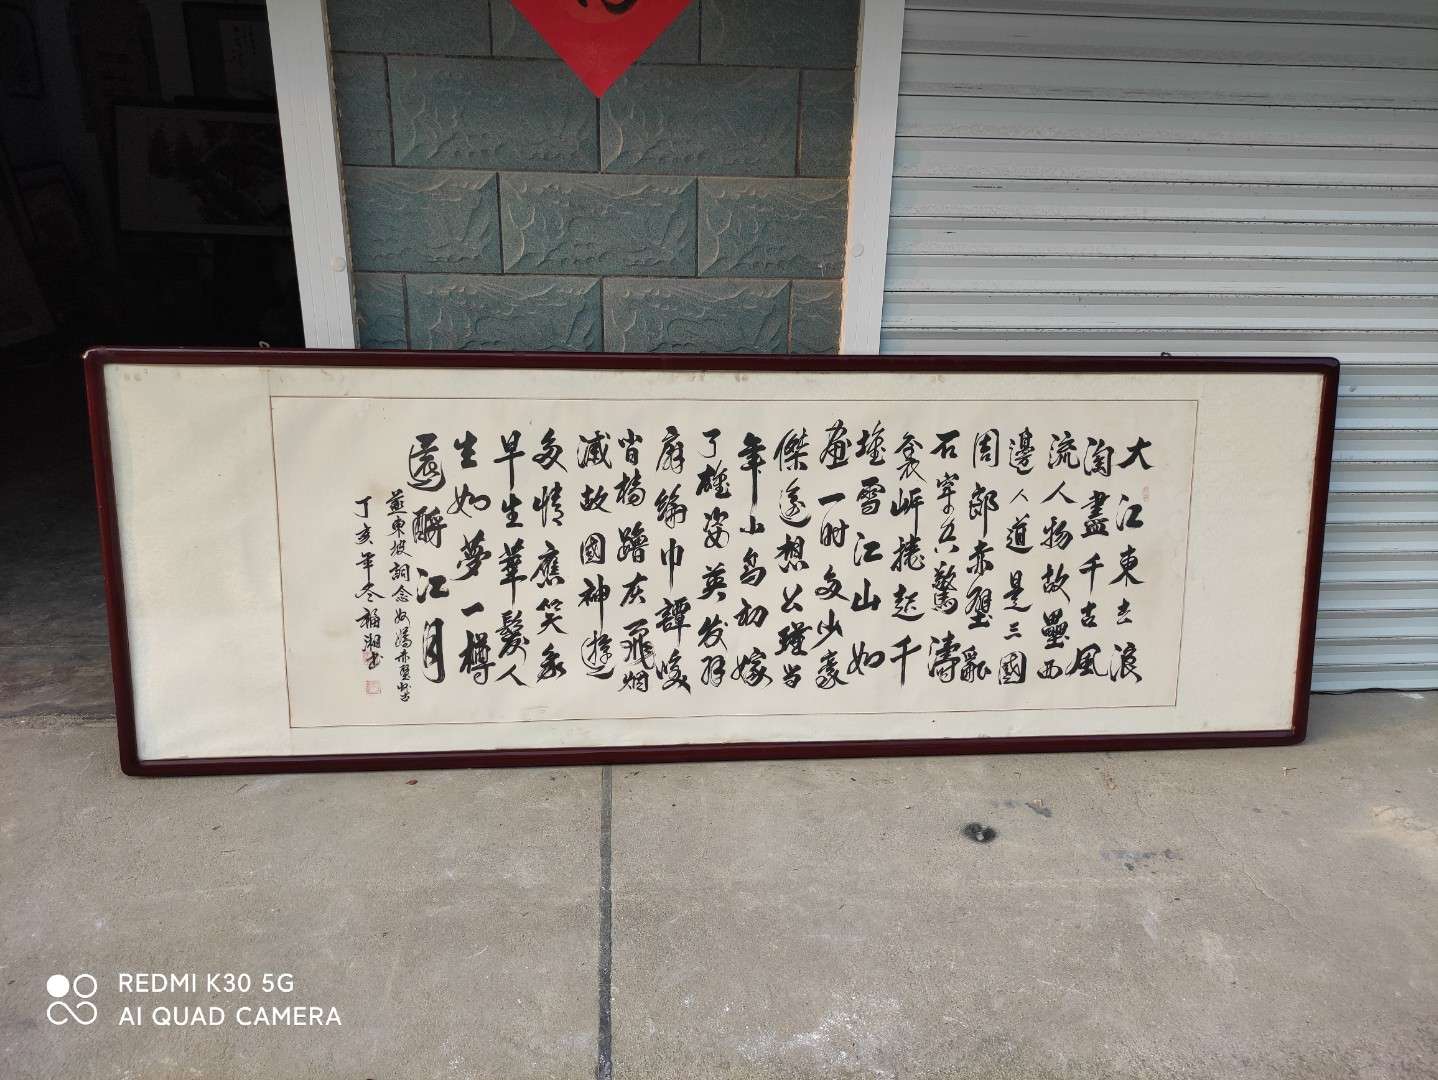 大江東去浪
淘盡千古風
流人物故壘西
邊人道是三國
周郎赤壁亂
石穿空驚濤
裂岸捲起千
堆雪江山如
畫一时多少豪
傑遙想公瑾當
年小喬初嫁
了雄姿英发羽
扇綸巾譚
檣灰飛烟
滅故國神遊
多情應笑我
早生華髮人
生如夢一樽
還酹江月
蘇東坡詞念奴嬌赤壁懷古
丁亥年冬福湘书
REDMI K30 5G
AI QUAD CAMERA